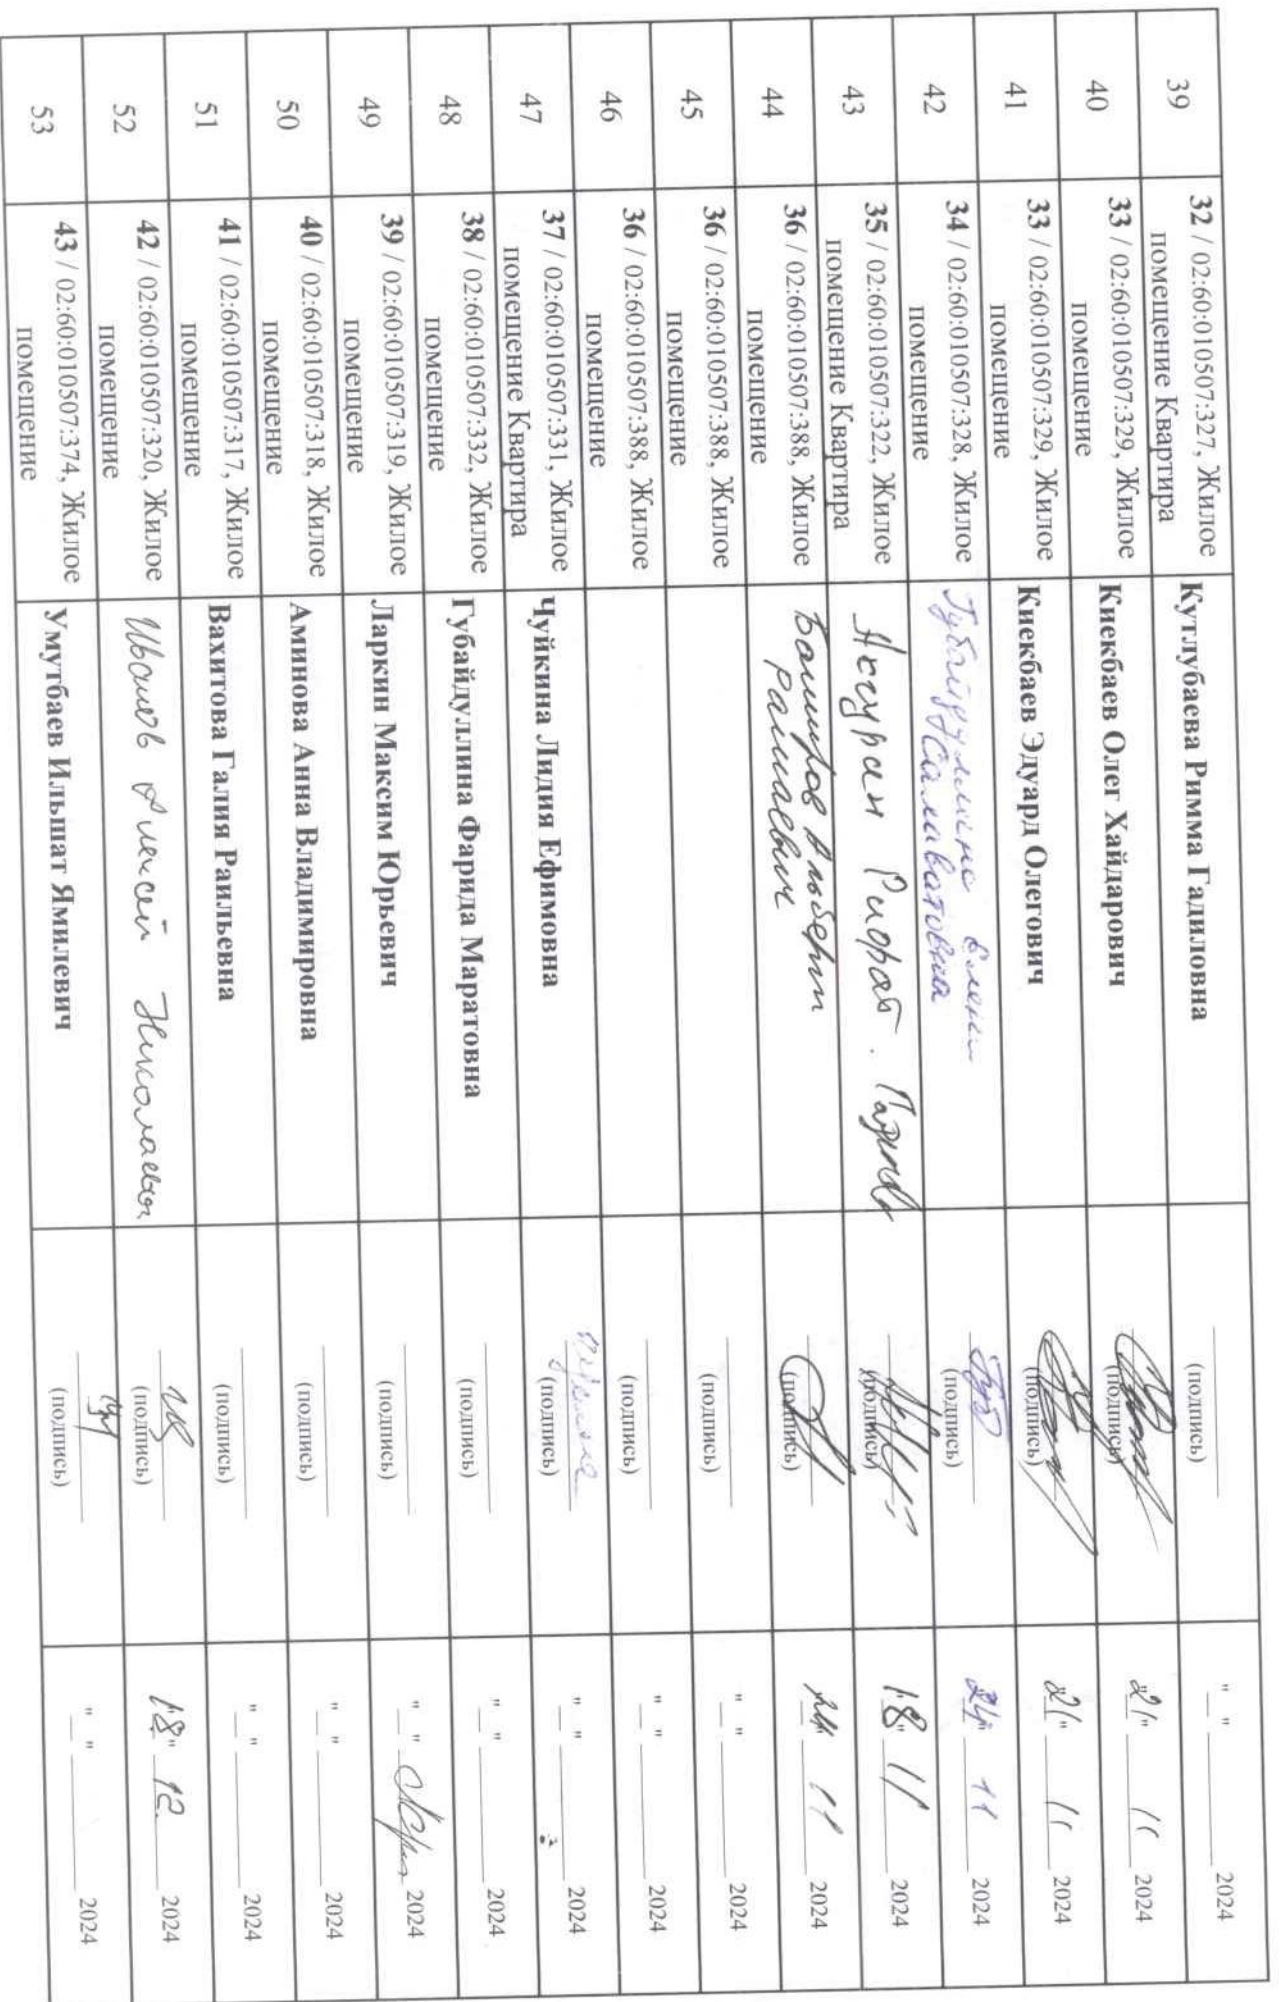 39
32 / 02:60:010507:327, Жилое
помещение Квартира
Кутлубаева Римма Гадиловна
(подпись)
"__" ________ 2024
40
33 / 02:60:010507:329, Жилое
помещение
Киекбаев Олег Хайдарович
(подпись)
"21" 11 2024
41
33 / 02:60:010507:329, Жилое
помещение
Киекбаев Эдуард Олегович
(подпись)
"21" 11 2024
42
34 / 02:60:010507:328, Жилое
помещение
Салаватовна
(подпись)
"24" 11 2024
43
35 / 02:60:010507:322, Жилое
помещение Квартира
(подпись)
"18" 11 2024
44
36 / 02:60:010507:388, Жилое
помещение
Баширов Альберт
(подпись)
11 2024
45
36 / 02:60:010507:388, Жилое
помещение
(подпись)
"__" ________ 2024
46
36 / 02:60:010507:388, Жилое
помещение
(подпись)
"__" ________ 2024
47
37 / 02:60:010507:331, Жилое
помещение Квартира
Чуйкина Лидия Ефимовна
(подпись)
"__" ________ 2024
48
38 / 02:60:010507:332, Жилое
помещение
Губайдуллина Фарида Маратовна
(подпись)
"__" ________ 2024
49
39 / 02:60:010507:319, Жилое
помещение
Ларкин Максим Юрьевич
(подпись)
"__" 2024
50
40 / 02:60:010507:318, Жилое
помещение
Аминова Анна Владимировна
(подпись)
"__" ________ 2024
51
41 / 02:60:010507:317, Жилое
помещение
Вахитова Галия Раильевна
(подпись)
"__" ________ 2024
52
42 / 02:60:010507:320, Жилое
помещение
Иванов Алексей Николаевич
(подпись)
"18" 12 2024
53
43 / 02:60:010507:374, Жилое
помещение
Умутбаев Ильшат Ямилевич
(подпись)
"__" ________ 2024